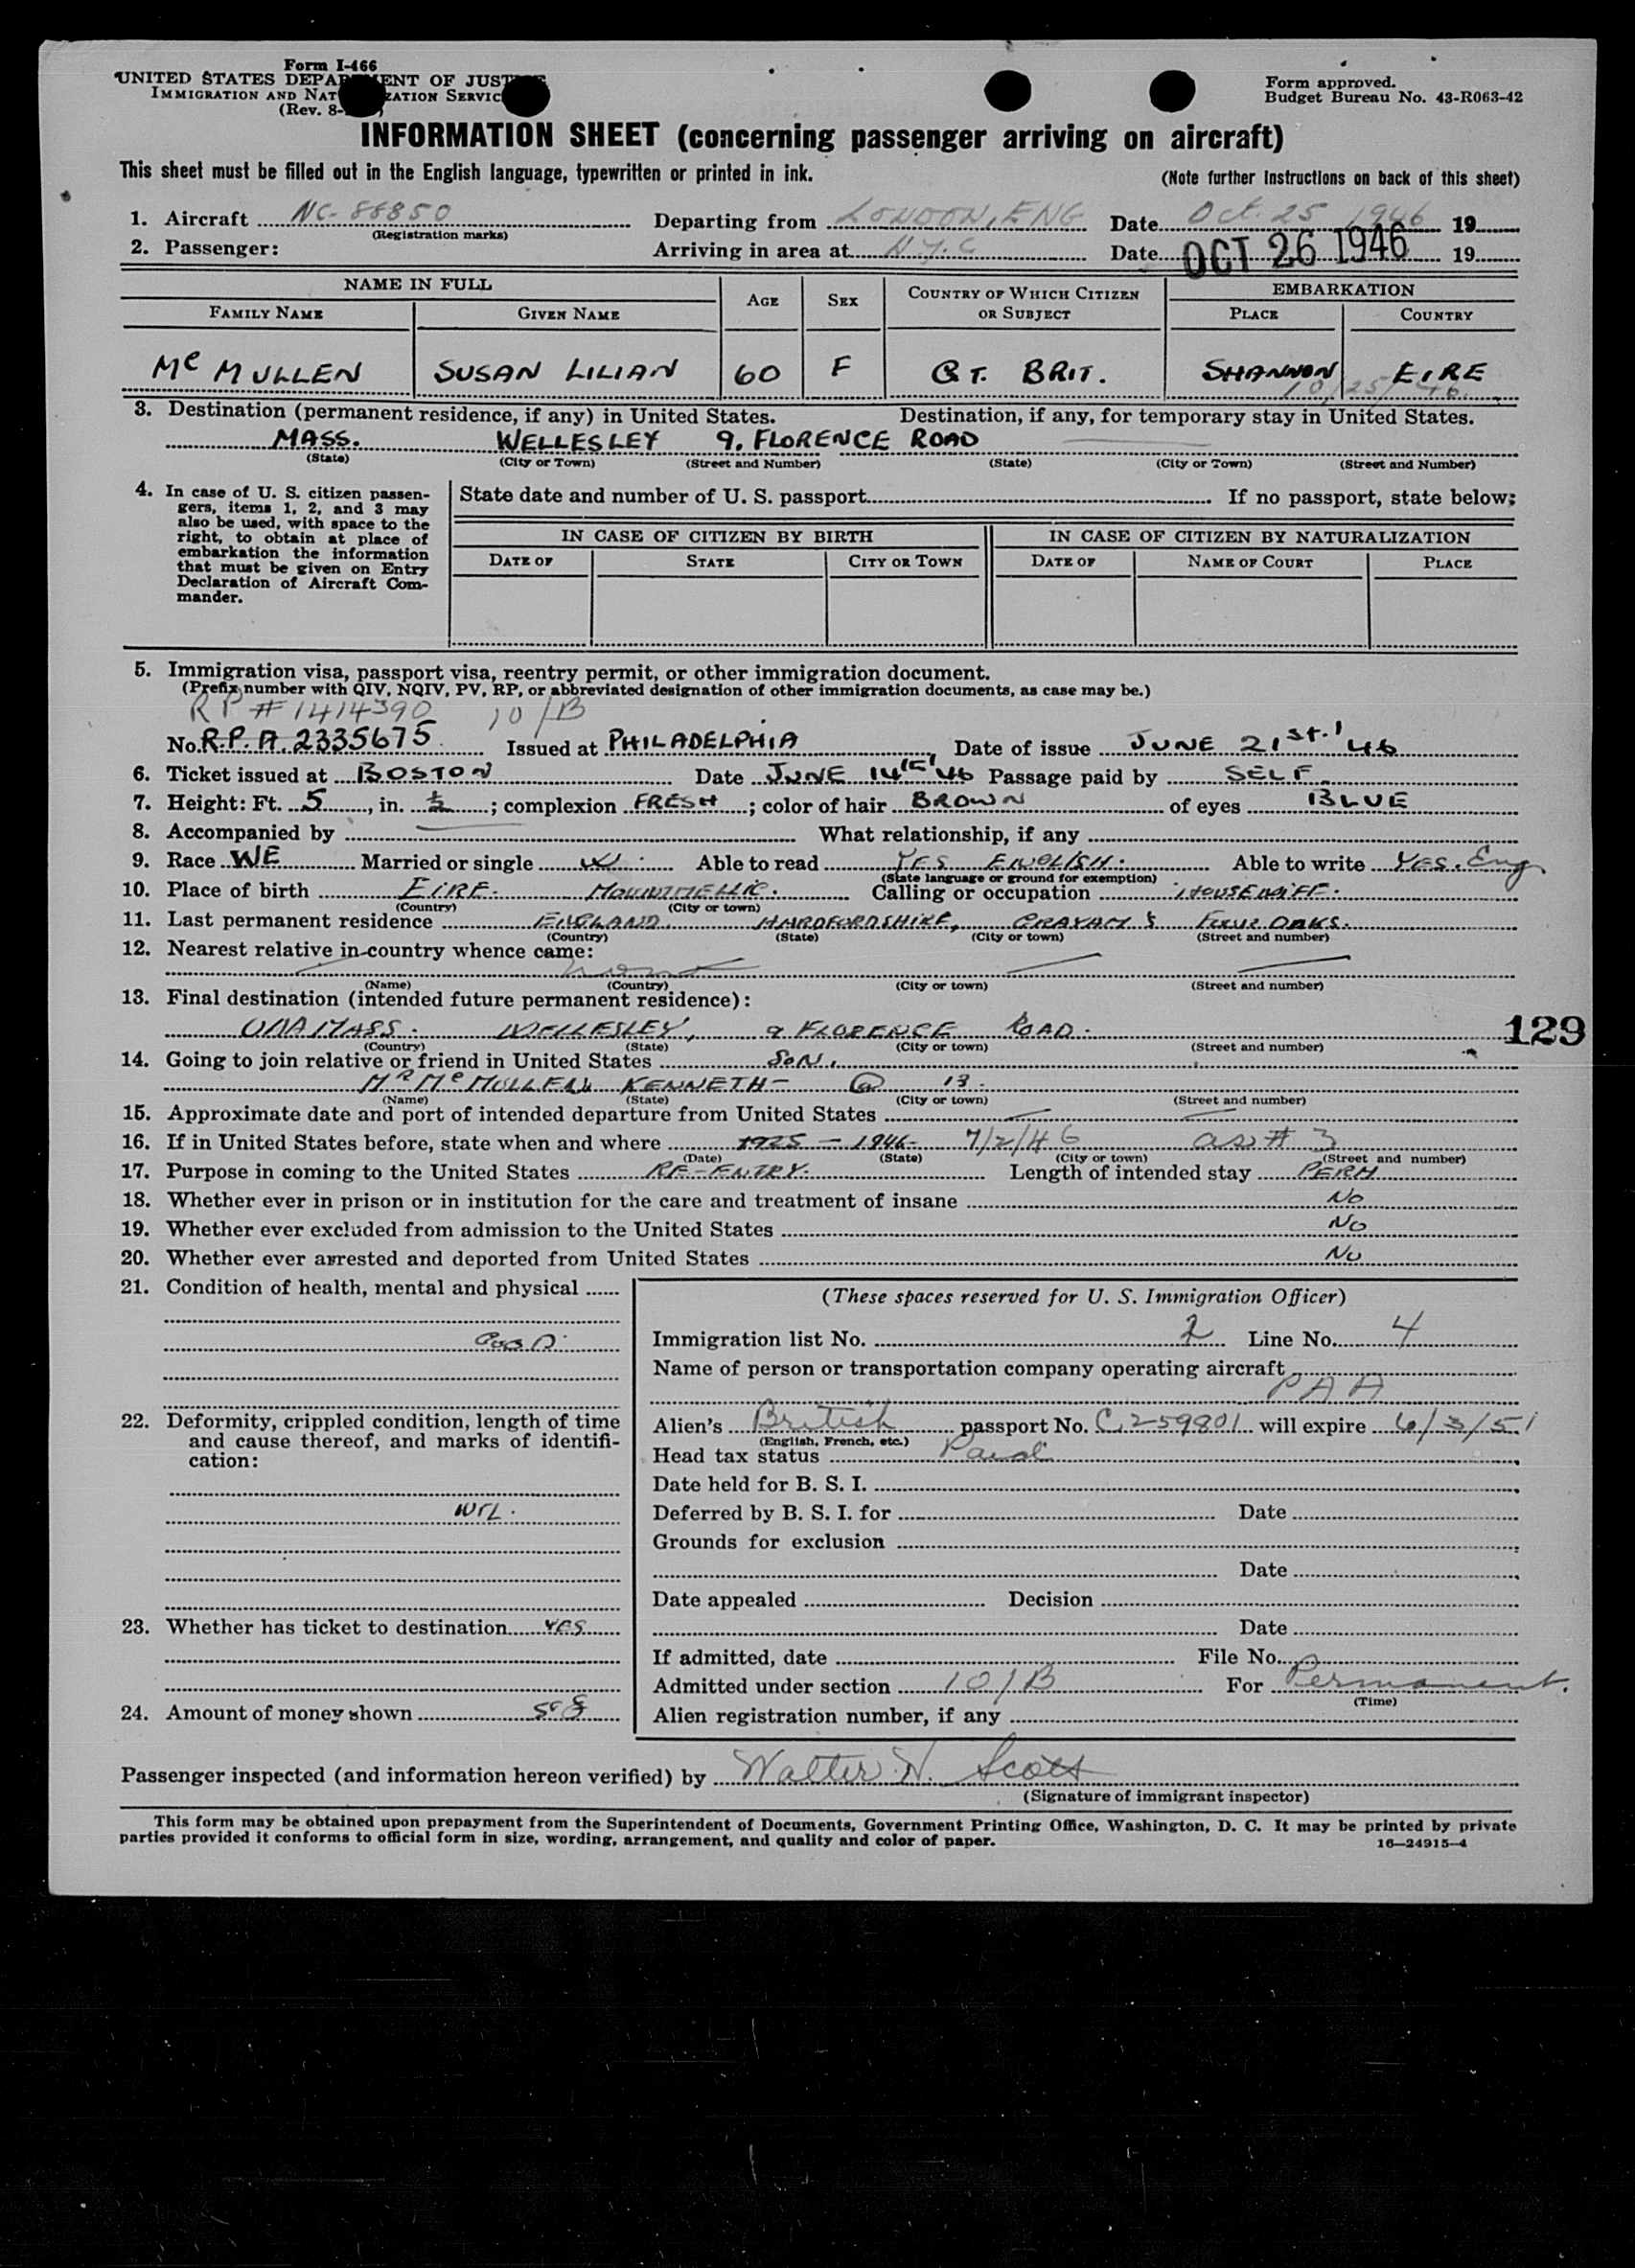 Form I-466
UNITED STATES DEPARTMENT OF JUSTICE
IMMIGRATION AND NATURALIZATION SERVICE
(Rev. 8-
Form approved.
Budget Bureau No. 43-R063-42
INFORMATION SHEET (concerning passenger arriving on aircraft)
This sheet must be filled out in the English language, typewritten or printed in ink.
(Note further instructions on back of this sheet)
1. Aircraft NC-88850 Departing from LONDON, ENG Date Oct. 25 1946 19
(Registration marks)
2. Passenger: Arriving in area at N.Y.C Date OCT 26 1946 19
NAME IN FULL AGE SEX COUNTRY OF WHICH CITIZEN OR SUBJECT EMBARKATION
FAMILY NAME GIVEN NAME PLACE COUNTRY
McMULLEN SUSAN LILIAN 60 F GT. BRIT. SHANNON EIRE
10/25/46
3. Destination (permanent residence, if any) in United States. Destination, if any, for temporary stay in United States.
MASS. WELLESLEY 9. FLORENCE ROAD
(State) (City or Town) (Street and Number) (State) (City or Town) (Street and Number)
4. In case of U. S. citizen passengers, items 1, 2, and 3 may also be used, with space to the right, to obtain at place of embarkation the information that must be given on Entry Declaration of Aircraft Commander.
State date and number of U. S. passport If no passport, state below:
IN CASE OF CITIZEN BY BIRTH IN CASE OF CITIZEN BY NATURALIZATION
DATE OF STATE CITY OR TOWN DATE OF NAME OF COURT PLACE
5. Immigration visa, passport visa, reentry permit, or other immigration document.
(Prefix number with QIV, NQIV, PV, RP, or abbreviated designation of other immigration documents, as case may be.)
RP # 1414390 10/B
No. R.P.A. 2335675 Issued at PHILADELPHIA, Date of issue JUNE 21st. '46
6. Ticket issued at BOSTON Date JUNE 14 '46 Passage paid by SELF
7. Height: Ft. 5, in. ½; complexion FRESH; color of hair BROWN of eyes BLUE
8. Accompanied by What relationship, if any
9. Race WE Married or single W. Able to read YES ENGLISH. Able to write YES. Eng
(State language or ground for exemption)
10. Place of birth EIRE. MOUNTMELLIC. Calling or occupation HOUSEWIFE.
(Country) (City or town)
11. Last permanent residence ENGLAND. HARDFORDSHIRE, FOUR OAKS.
(Country) (State) (City or town) (Street and number)
12. Nearest relative in country whence came:
none
(Name) (Country) (City or town) (Street and number)
13. Final destination (intended future permanent residence):
MASS. WELLESLEY, 9 FLORENCE ROAD.
(Country) (State) (City or town) (Street and number)
129
14. Going to join relative or friend in United States SON.
MR McMULLEN KENNETH - @ 13.
(Name) (State) (City or town) (Street and number)
15. Approximate date and port of intended departure from United States
16. If in United States before, state when and where 1925 - 1946- 7/2/46 as # 3
(Date) (State) (City or town) (Street and number)
17. Purpose in coming to the United States RE-ENTRY. Length of intended stay PERM
18. Whether ever in prison or in institution for the care and treatment of insane No
19. Whether ever excluded from admission to the United States No
20. Whether ever arrested and deported from United States No
21. Condition of health, mental and physical
GOOD.
22. Deformity, crippled condition, length of time and cause thereof, and marks of identification:
23. Whether has ticket to destination YES
24. Amount of money shown
(These spaces reserved for U. S. Immigration Officer)
Immigration list No. 2 Line No. 4
Name of person or transportation company operating aircraft
PAA
Alien's British passport No. C.259801 will expire 6/3/51
(English, French, etc.)
Head tax status Paid
Date held for B. S. I.
Deferred by B. S. I. for Date
Grounds for exclusion
Date
Date appealed Decision
Date
If admitted, date File No.
Admitted under section 10/B For Permanent.
(Time)
Alien registration number, if any
Passenger inspected (and information hereon verified) by Walter W. Scott
(Signature of immigrant inspector)
This form may be obtained upon prepayment from the Superintendent of Documents, Government Printing Office, Washington, D. C. It may be printed by private
parties provided it conforms to official form in size, wording, arrangement, and quality and color of paper.
16—24915-4